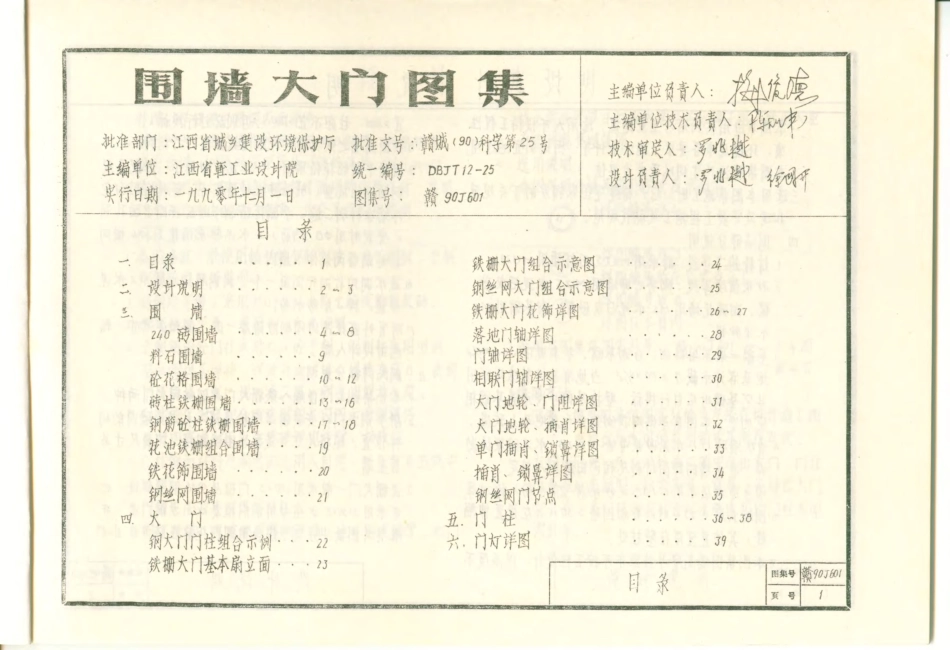 围墙大门图集
批准部门：江西省城乡建设环境保护厅 批准文号：赣城(90)科字第25号
主编单位：江西省轻工业设计院 统一编号：DBJT12-25
实行日期：一九九零年十二月一日 图集号：赣90J601
主编单位负责人：
主编单位技术负责人：
技术审定人：
设计负责人：
目录
一. 目录 · · · · · · 1
二. 设计说明 · · · · · · 2~3
三. 围 墙
240砖围墙 · · · · · · 4~8
料石围墙 · · · · · · 9
砼花格围墙 · · · · · · 10~12
砖柱铁栅围墙 · · · · · · 13~16
钢筋砼柱铁栅围墙 · · · · · 17~18
花池铁栅组合围墙 · · · · · 19
铁花饰围墙 · · · · · · 20
钢丝网围墙 · · · · · · 21
四. 大 门
钢大门门柱组合示例 · · · 22
铁栅大门基本扇立面 · · · 23
铁栅大门组合示意图 · · · · · · 24
钢丝网大门组合示意图 · · · · · · 25
铁栅大门花饰详图 · · · · · · 26~27
落地门轴详图 · · · · · · 28
门轴详图 · · · · · · 29
相联门轴详图 · · · · · · 30
大门地轮、门阻详图 · · · · · · 31
大门地轮、插肖详图 · · · · · · 32
单门插肖、锁鼻详图 · · · · · · 33
插肖、锁鼻详图 · · · · · · 34
钢丝网门节点 · · · · · · 35
五. 门柱 · · · · · · 36~38
六. 门灯详图 · · · · · · 39
目录
图集号 赣90J601
页号 1